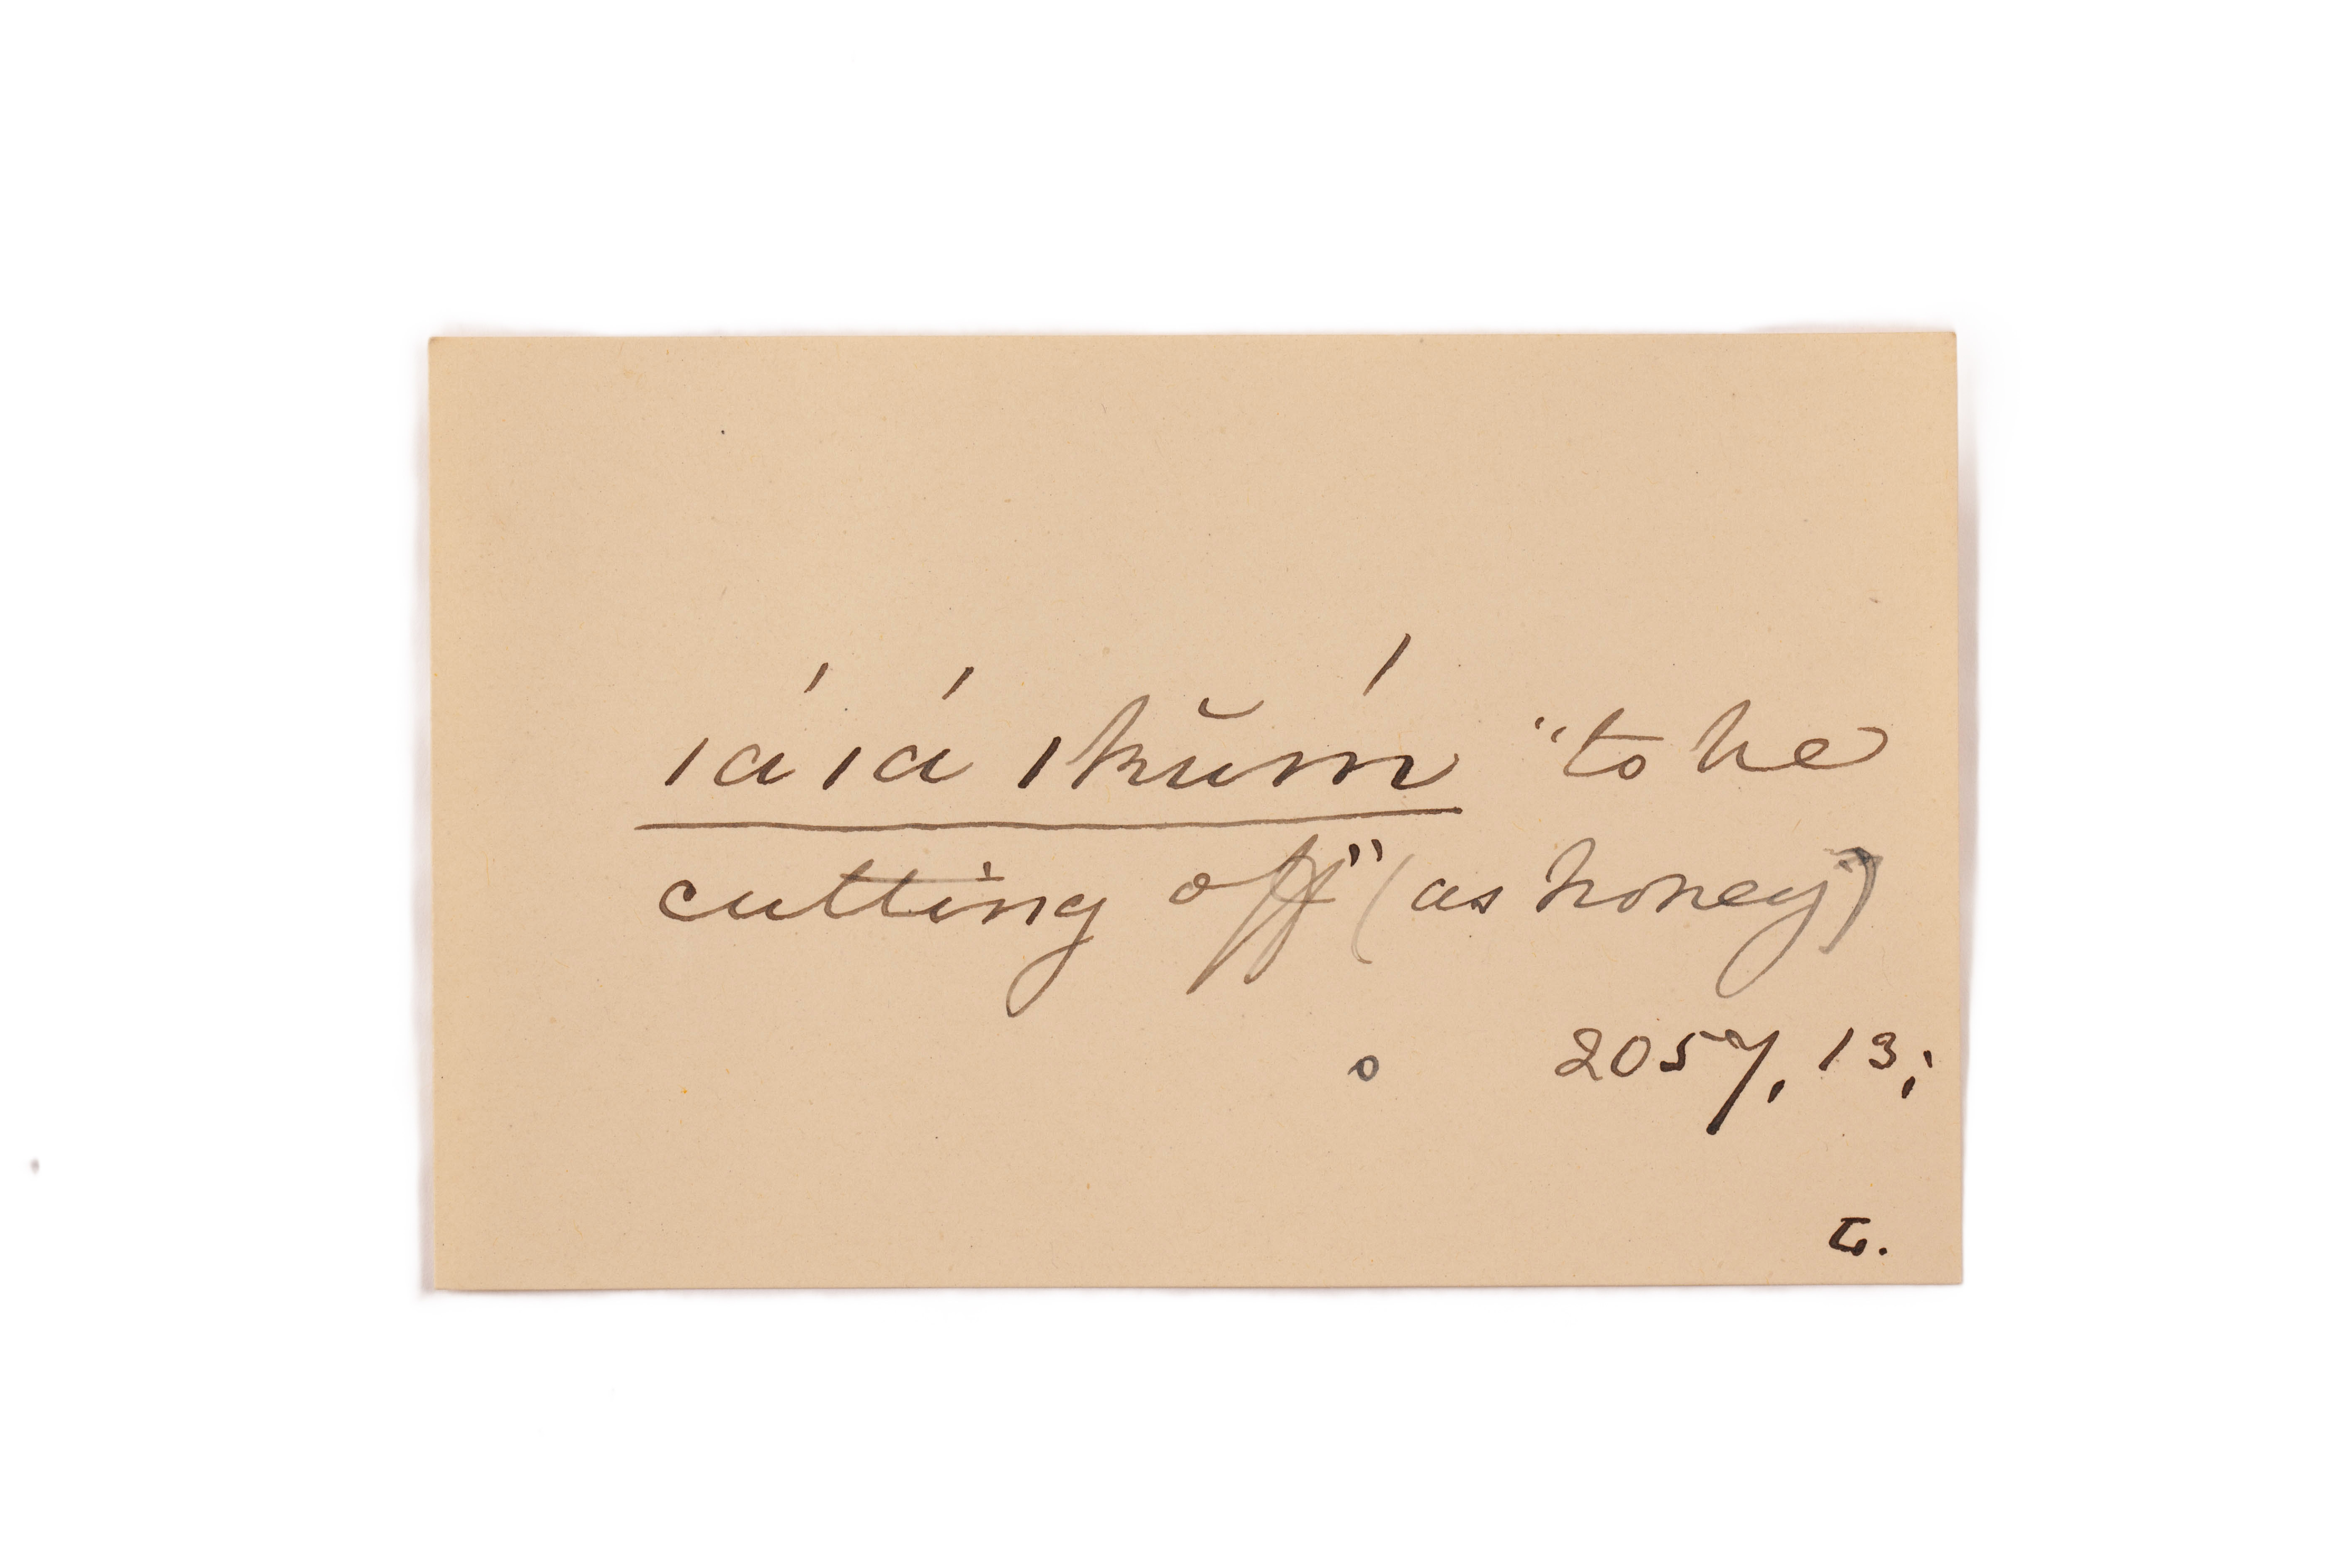 ıá ıá ıkŭḿ "to be
cutting off" (as honey)
2057, 13;